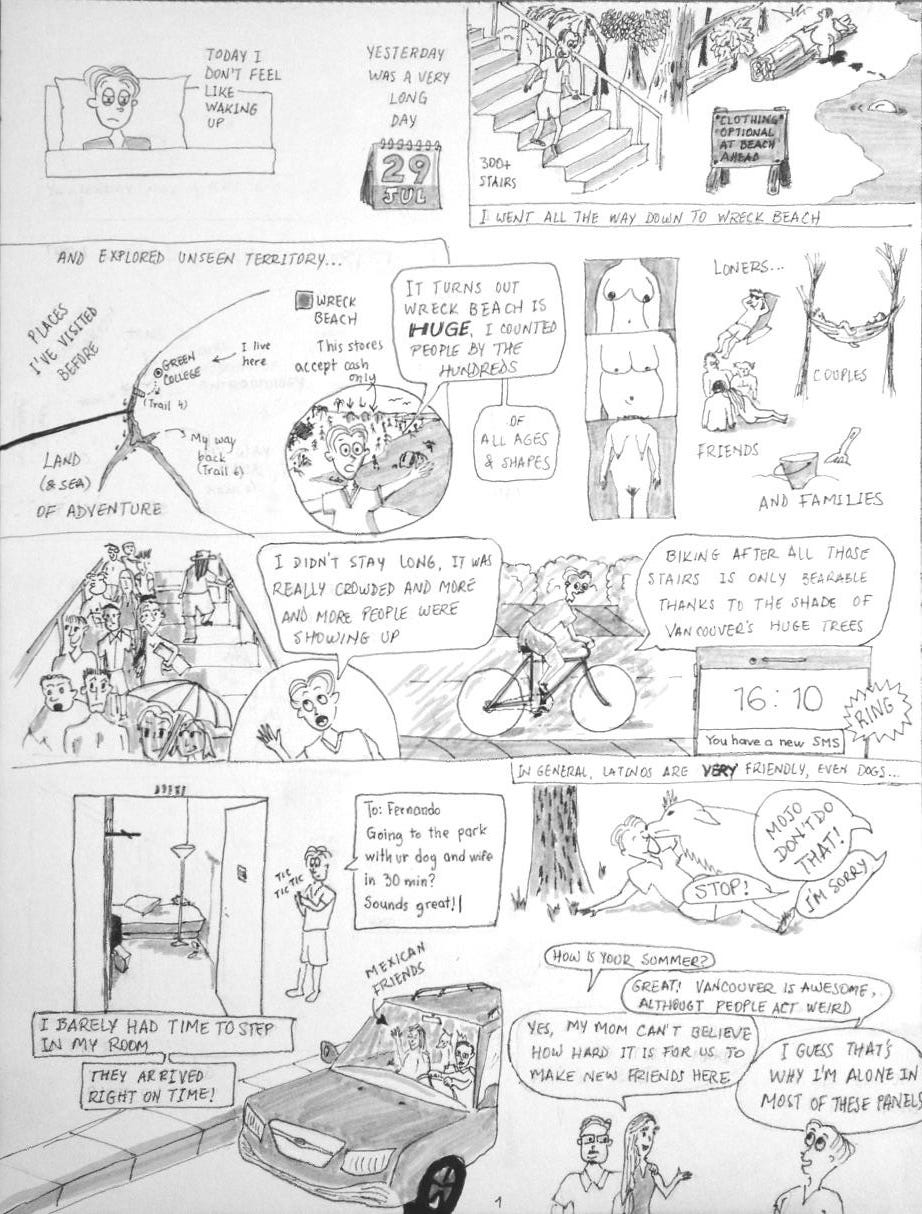 TODAY I
DON'T FEEL
LIKE
WAKING
UP
YESTERDAY
WAS A VERY
LONG
DAY
29
JUL
300+
STAIRS
CLOTHING
OPTIONAL
AT BEACH
AHEAD
I WENT ALL THE WAY DOWN TO WRECK BEACH
AND EXPLORED UNSEEN TERRITORY...
PLACES
I'VE VISITED
BEFORE
GREEN
COLLEGE
I live
here
(Trail 4)
My way
back
(Trail 6)
LAND
(& SEA)
OF ADVENTURE
WRECK
BEACH
This stores
accept cash
only
IT TURNS OUT
WRECK BEACH IS
HUGE, I COUNTED
PEOPLE BY THE
HUNDREDS
OF
ALL AGES
& SHAPES
LONERS...
COUPLES
FRIENDS
AND FAMILIES
I DIDN'T STAY LONG, IT WAS
REALLY CROWDED AND MORE
AND MORE PEOPLE WERE
SHOWING UP
BIKING AFTER ALL THOSE
STAIRS IS ONLY BEARABLE
THANKS TO THE SHADE OF
VANCOUVER'S HUGE TREES
16:10
You have a new SMS
RING
TIC
TIC TIC
To: Fernando
Going to the park
with ur dog and wife
in 30 min?
Sounds great!!
I BARELY HAD TIME TO STEP
IN MY ROOM
THEY ARRIVED
RIGHT ON TIME!
MEXICAN
FRIENDS
IN GENERAL, LATINOS ARE VERY FRIENDLY, EVEN DOGS...
MOJO
DON'T DO
THAT!
STOP!
I'M SORRY
HOW IS YOUR SUMMER?
GREAT! VANCOUVER IS AWESOME,
ALTHOUGT PEOPLE ACT WEIRD
YES, MY MOM CAN'T BELIEVE
HOW HARD IT IS FOR US TO
MAKE NEW FRIENDS HERE
I GUESS THAT'S
WHY I'M ALONE IN
MOST OF THESE PANELS
1